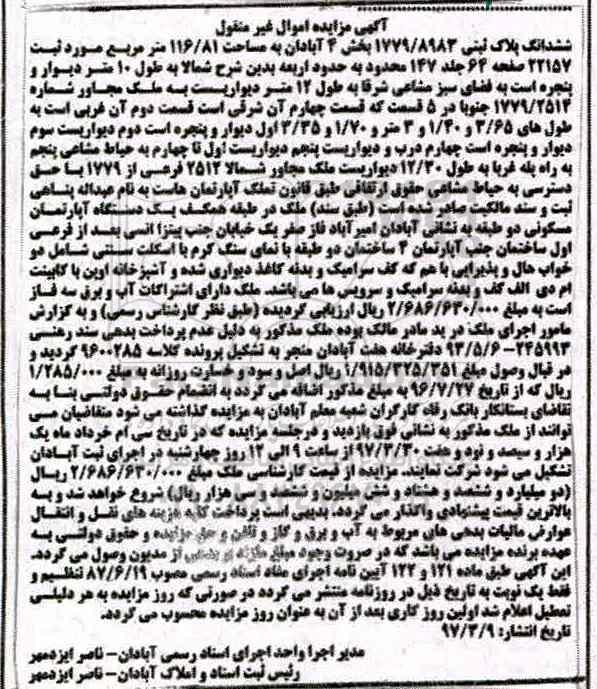 آگهی مزایده اموال غیر منقول
ششدانگ پلاک ثبتی ۱۷۷۹/۸۹۸۳ بخش ۴ آبادان به مساحت ۱۱۶/۸۱ متر مربع مورد ثبت
۲۲۱۵۷ صفحه ۶۴ جلد ۱۴۷ محدود به حدود اربعه بدین شرح شمالا به طول ۱۰ متر دیوار و
پنجره است به فضای سبز مشاعی شرقا به طول ۱۲ متر دیواریست به ملک مجاور شماره
۱۷۷۹/۲۵۱۴ جنوبا در ۵ قسمت که قسمت چهارم آن شرقی است قسمت دوم آن غربی است به
طول های ۳/۶۵ و ۱/۴۰ و ۳ متر و ۱/۷۰ و ۳/۳۵ اول دیوار و پنجره است دوم دیواریست سوم
دیوار و پنجره است چهارم درب و دیواریست پنجم دیواریست اول تا چهارم به حیاط مشاعی پنجم
به راه پله غربا به طول ۱۲/۳۰ دیواریست ملک مجاور شمالا ۲۵۱۲ فرعی از ۱۷۷۹ با حق
دسترسی به حیاط مشاعی حقوق ارتفاقی طبق قانون تملک آپارتمان هاست به نام عبداله پناهی
ثبت و سند مالکیت صادر شده است (طبق سند) ملک در طبقه همکف یک دستگاه آپارتمان
مسکونی دو طبقه به نشانی آبادان امیرآباد فاز صفر یک خیابان جنب پیتزا انسی بعد از فرعی
اول ساختمان جنب آپارتمان ۴ ساختمان دو طبقه با نمای سنگ گرم با اسکلت سنتی شامل دو
خواب هال و پذیرایی با هم که کف سرامیک و بدنه کاغذ دیواری شده و آشپزخانه اوپن با کابینت
ام دی الف کف و بدنه سرامیک و سرویس ها می باشد. ملک دارای اشتراکات آب و برق سه فاز
است به مبلغ ۲/۶۸۶/۶۳۰/۰۰۰ ریال ارزیابی گردیده (طبق نظر کارشناس رسمی) و به گزارش
مامور اجرای ملک در ید مادر مالک بوده ملک مذکور به دلیل عدم پرداخت بدهی سند رهنی
۲۴۵۹۹۳-۹۳/۵/۶ دفترخانه هفت آبادان منجر به تشکیل پرونده کلاسه ۹۶۰۰۲۸۵ گردید و
در قبال وصول مبلغ ۱/۹۱۵/۳۲۵/۳۵۱ ریال اصل و سود و خسارت روزانه به مبلغ ۱/۲۸۵/۰۰۰
ریال که از تاریخ ۹۶/۷/۲۷ به مبلغ مذکور اضافه می گردد به انضمام حقوق دولتی بنا به
تقاضای بستانکار بانک رفاه کارگران شعبه معلم آبادان به مزایده گذاشته می شود متقاضیان می
توانند از ملک مذکور به نشانی فوق بازدید و درجلسه مزایده که در تاریخ سی ام خرداد ماه یک
هزار و سیصد و نود و هفت ۹۷/۳/۳۰ از ساعت ۹ الی ۱۲ روز چهارشنبه در اجرای ثبت آبادان
تشکیل می شود شرکت نمایند. مزایده از قیمت کارشناسی ملک مبلغ ۲/۶۸۶/۶۳۰/۰۰۰ ریال
(دو میلیارد و ششصد و هشتاد و شش میلیون و ششصد و سی هزار ریال) شروع خواهد شد و به
بالاترین قیمت پیشنهادی واگذار می گردد. بدیهی است پرداخت کلیه هزینه های نقل و انتقال
عوارض مالیات بدهی های مربوط به آب و برق و گاز و تلفن و حق مزایده و حقوق دولتی به
عهده برنده مزایده می باشد که در صروت وجود مبلغ مازاد بر بدهی از مدیون وصول می گردد.
این آگهی طبق ماده ۱۲۱ و ۱۲۲ آیین نامه اجرای مفاد اسناد رسمی مصوب ۸۷/۶/۱۹ تنظیم و
فقط یک نوبت به تاریخ ذیل در روزنامه منتشر می گردد در صورتی که روز مزایده به هر دلیلی
تعطیل اعلام شد اولین روز کاری بعد از آن به عنوان روز مزایده محسوب می گردد.
تاریخ انتشار: ۹۷/۳/۹
مدیر اجرا واحد اجرای اسناد رسمی آبادان- ناصر ایزدمهر
رئیس ثبت اسناد و املاک آبادان- ناصر ایزدمهر